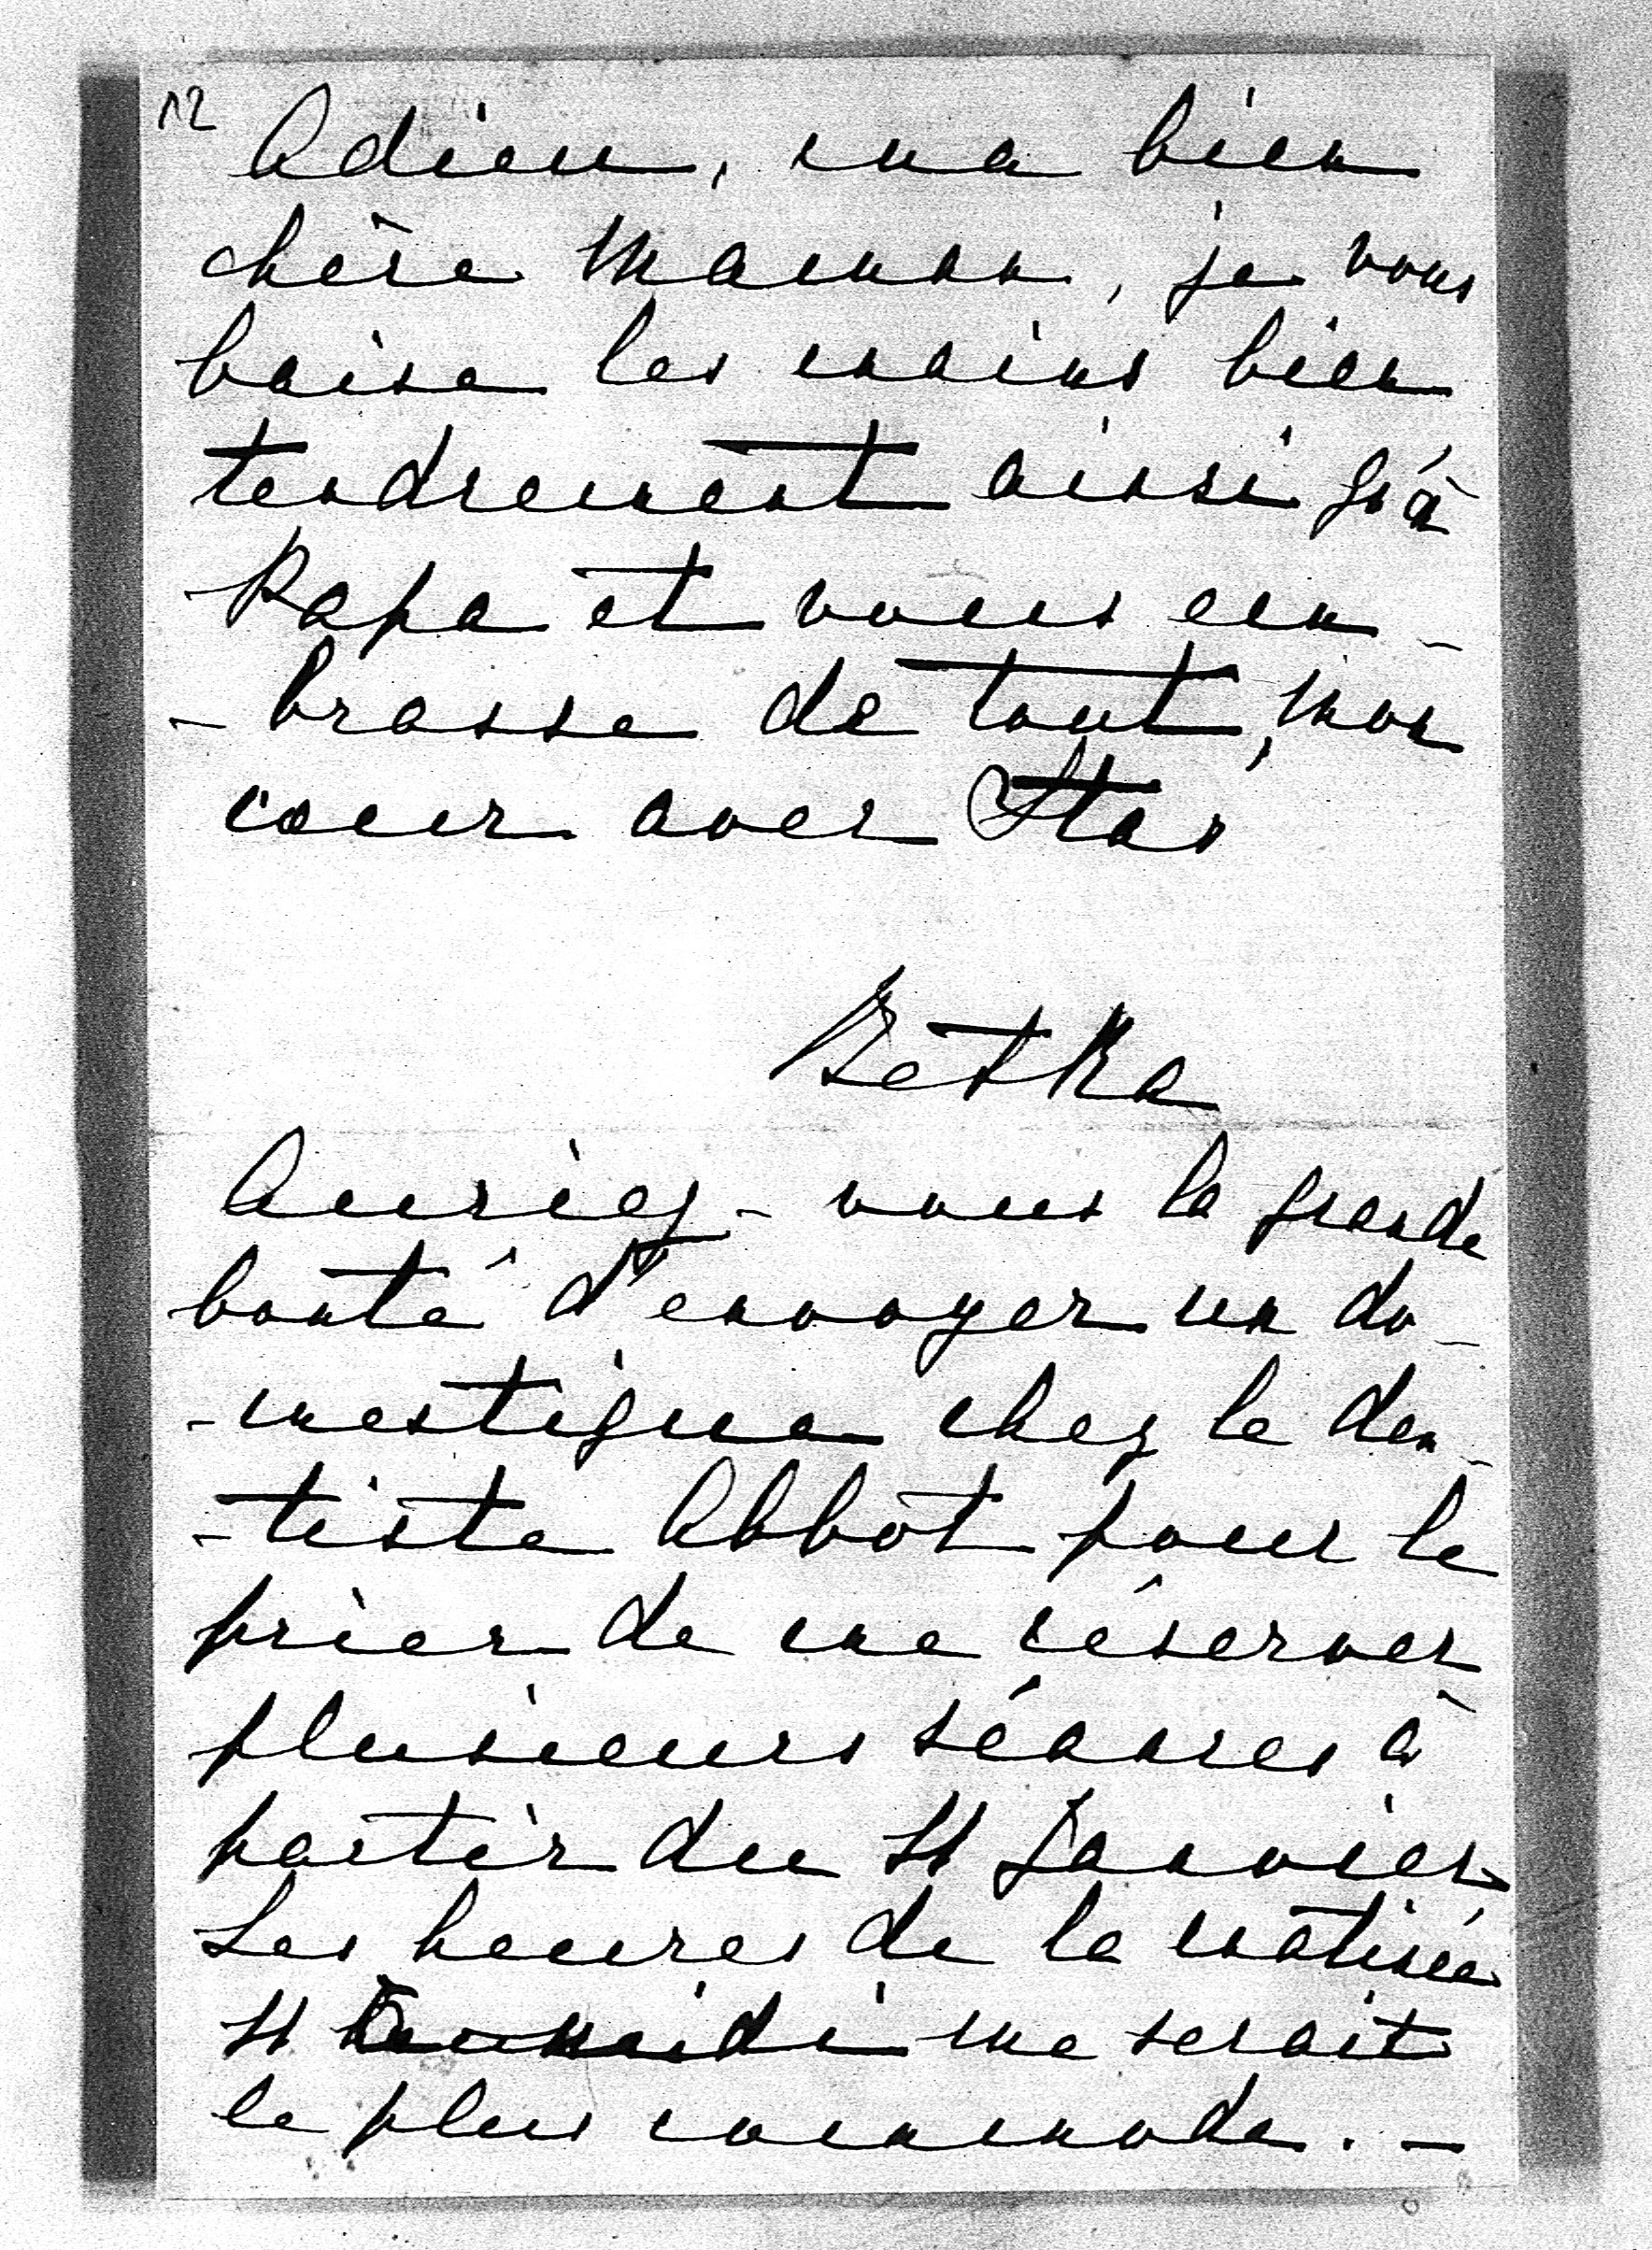 12 Adieu, ma bien
chère Maman, je vous
baise les mains bien
tendrement ainsi q'à
Papa et vous em-
-brasse de tout mon
coeur avec Stas
Betka
Auriez-vous la grande
bonté d'envoyer un do-
-mestique chez le den-
-tiste Abbot pour le
prier de me réserver
plusieurs séances à
partir du 11 Janvier
Les heures de la matinée
11 midi me serait
le plus commode. —